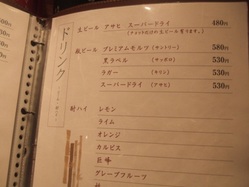 ドリンク
生ビール アサヒ スーパードライ 480円
瓶ビール プレミアムモルツ (サントリー) 580円
黒ラベル (サッポロ) 530円
ラガー (キリン) 530円
スーパードライ (アサヒ) 530円
酎ハイ レモン
ライム
オレンジ
カルピス
巨峰
グレープフルーツ